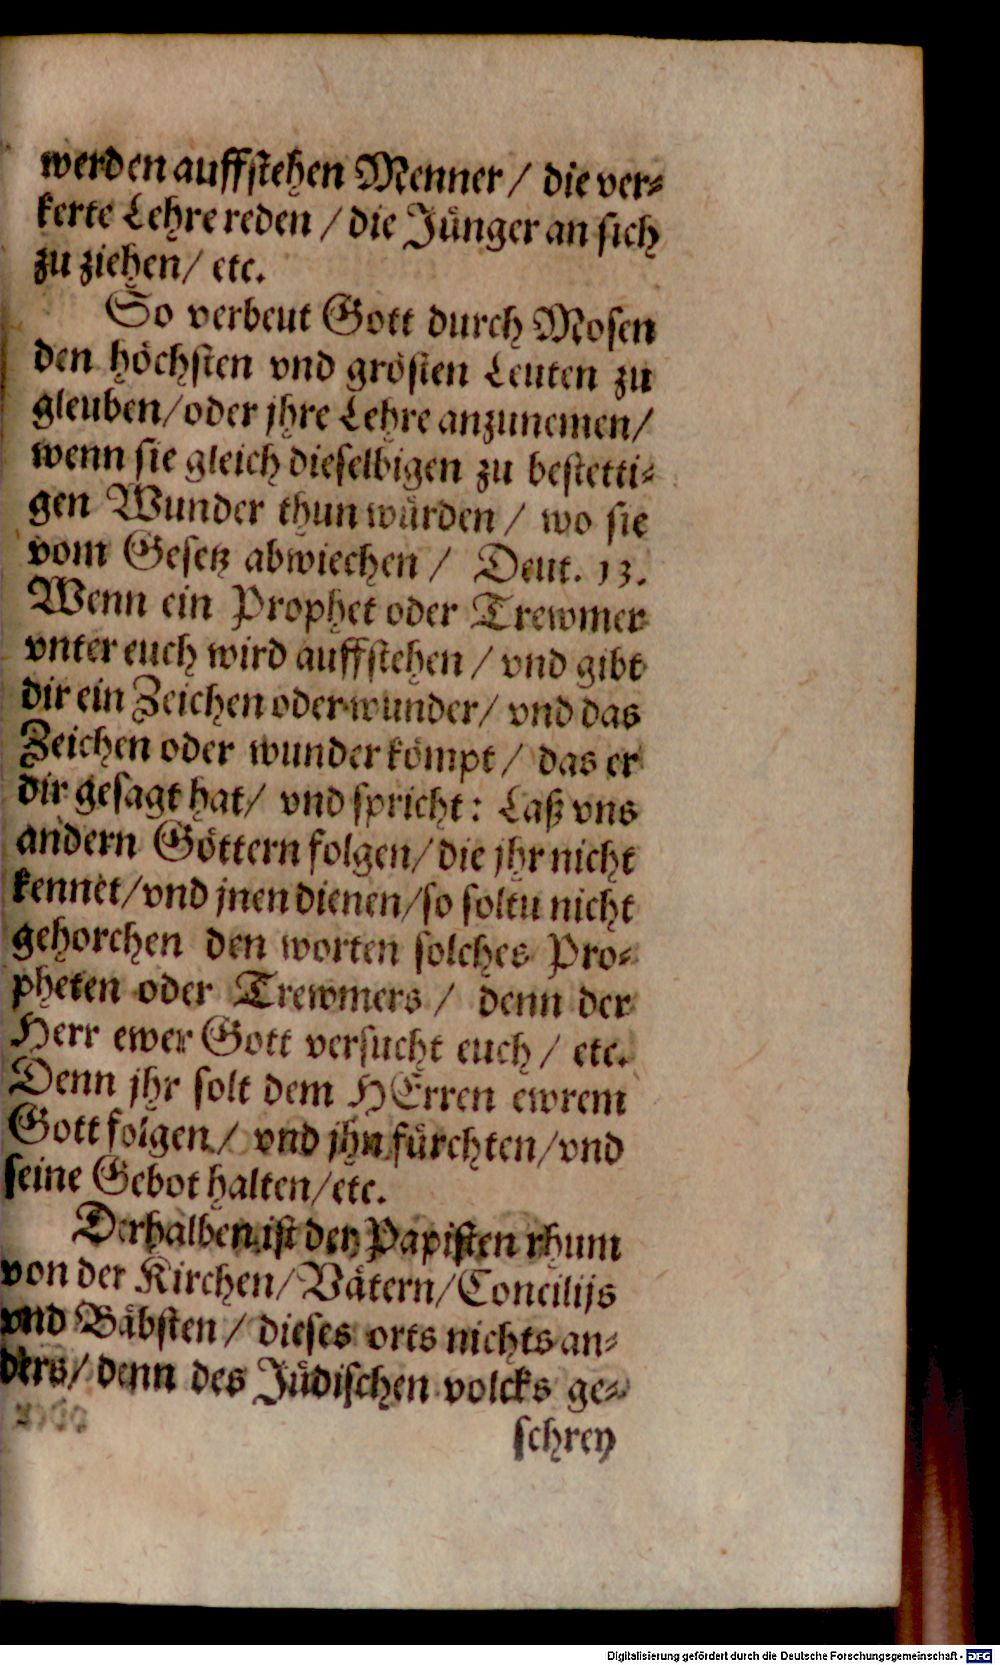 werden auffſtehen Menner / die ver⸗
kerte Lehre reden / die Jünger an ſich
zu ziehen / etc.
So verbeut Gott durch Moſen
den höchſten vnd gröſten Leuten zu
gleuben / oder jhre Lehre anzunemen /
wenn ſie gleich dieſelbigen zu beſtetti⸗
gen Wunder thun würden / wo ſie
vom Geſetz abwiechen / Deut. 13.
Wenn ein Prophet oder Trewmer
vnter euch wird auffſtehen / vnd gibt
dir ein Zeichen oder wunder / vnd das
Zeichen oder wunder kömpt / das er
dir geſagt hat / vnd ſpricht: Laß vns
andern Göttern folgen / die jhr nicht
kennet / vnd jnen dienen / ſo ſoltu nicht
gehorchen den worten ſolches Pro⸗
pheten oder Trewmers / denn der
Herr ewer Gott verſucht euch / etc.
Denn jhr ſolt dem HErren ewrem
Gott folgen / vnd jhn fürchten / vnd
ſeine Gebot halten / etc.
Derhalben iſt der Papiſten rhum
von der Kirchen / Vätern / Concilijs
vnd Bäbſten / dieſes orts nichts an⸗
ders / denn des Jüdiſchen volcks ge⸗
ſchrey
Digitalisierung gefördert durch die Deutsche Forschungsgemeinschaft - DFG